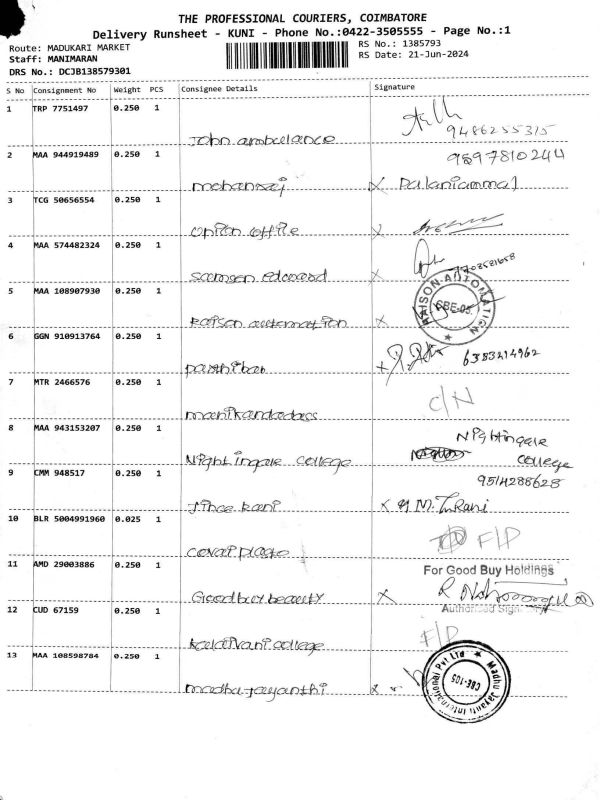 THE PROFESSIONAL COURIERS, COIMBATORE
Delivery Runsheet - KUNI - Phone No.:0422-3505555 - Page No.:1
Route: MADUKARI MARKET RS No.: 1385793
Staff: MANIMARAN RS Date: 21-Jun-2024
DRS No.: DCJB138579301
S No Consignment No Weight PCS Consignee Details Signature
1 TRP 7751497 0.250 1
John ambulance 9486255315
2 MAA 944919489 0.250 1 9597810244
mohanraj x Palaniammal
3 TCG 50656554 0.250 1
office x
4 MAA 574482324 0.250 1
samson edward x
5 MAA 108907930 0.250 1 RAISON AUTOMATION CBE-05.
Raison automation x
6 GGN 910913764 0.250 1
parthiban x 6383214962
7 MTR 2466576 0.250 1
C/N
8 MAA 943153207 0.250 1 Nightingale
Nightingale college college
9 CMM 948517 0.250 1 9514288628
x
10 BLR 5004991960 0.025 1 F/D
11 AMD 29003886 0.250 1 For Good Buy Holdings
Goodbuy beauty x
Authorised Sign
12 CUD 67159 0.250 1 F/D
Kalaivani college
13 MAA 108598784 0.250 1 Madhu Jayanti International Pvt Ltd CBE-105
madhu jayanthi x